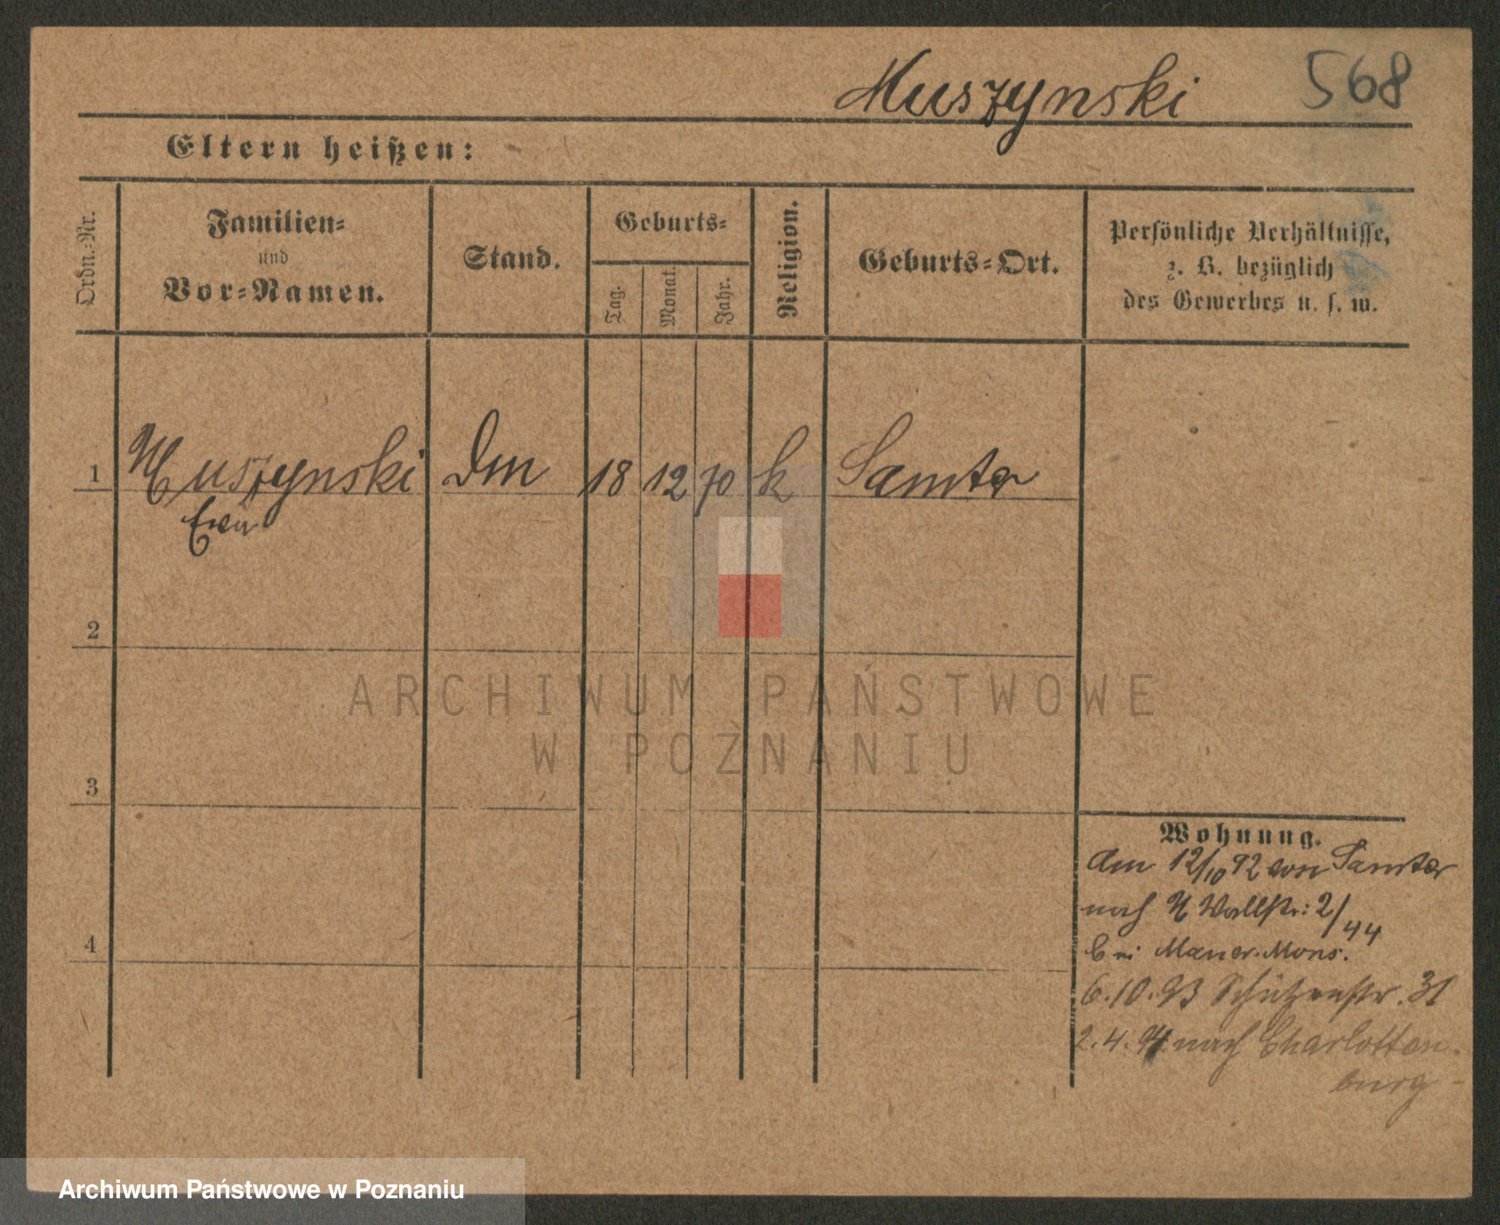 Muszynski 568
Eltern heißen:
Ordn.-Nr.
Familien-
und
Vor-Namen.
Stand.
Geburts-
Tag.
Monat.
Jahr.
Religion.
Geburts-Ort.
Persönliche Verhältnisse,
z. B. bezüglich
des Gewerbes u. s. w.
1 Muszynski 18 12 70 k Samter
Eva
2
3
4
Wohnung.
Am 12/10 92 von Samter
nach Wallstr: 2/44
bei
6.10.93 Schützenstr. 31
2.4.94 nach Charlotten-
burg
ARCHIWUM PAŃSTWOWE
W POZNANIU
Archiwum Państwowe w Poznaniu